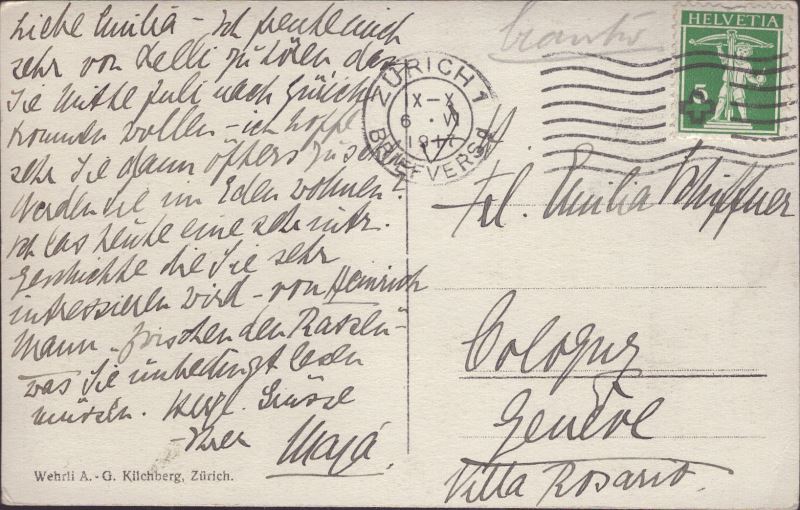 Liebe Emilia – Ich freute mich
sehr von Lelli zu hören das
Sie Mitte Juli nach Zürich
kommen wollen – ich hoffe
sehr Sie dann öfters zu sehen
Werden Sie im Eden wohnen?
Ich las heute eine sehr intr.
Geschichte die Sie sehr
intressieren wird – von Heinrich
Mann – Zwischen den Rassen –
was Sie unbedingt lesen
müssen. Herzl. Grüsse
– Ihre
Maja.
Wehrli A.-G. Kilchberg, Zürich.
HELVETIA
5
ZÜRICH 1
IX–X
6 · VI
1917
BRIEFVERSD
Frl. Emilia Schiffner
Cologny
Genève
Villa Rosario.